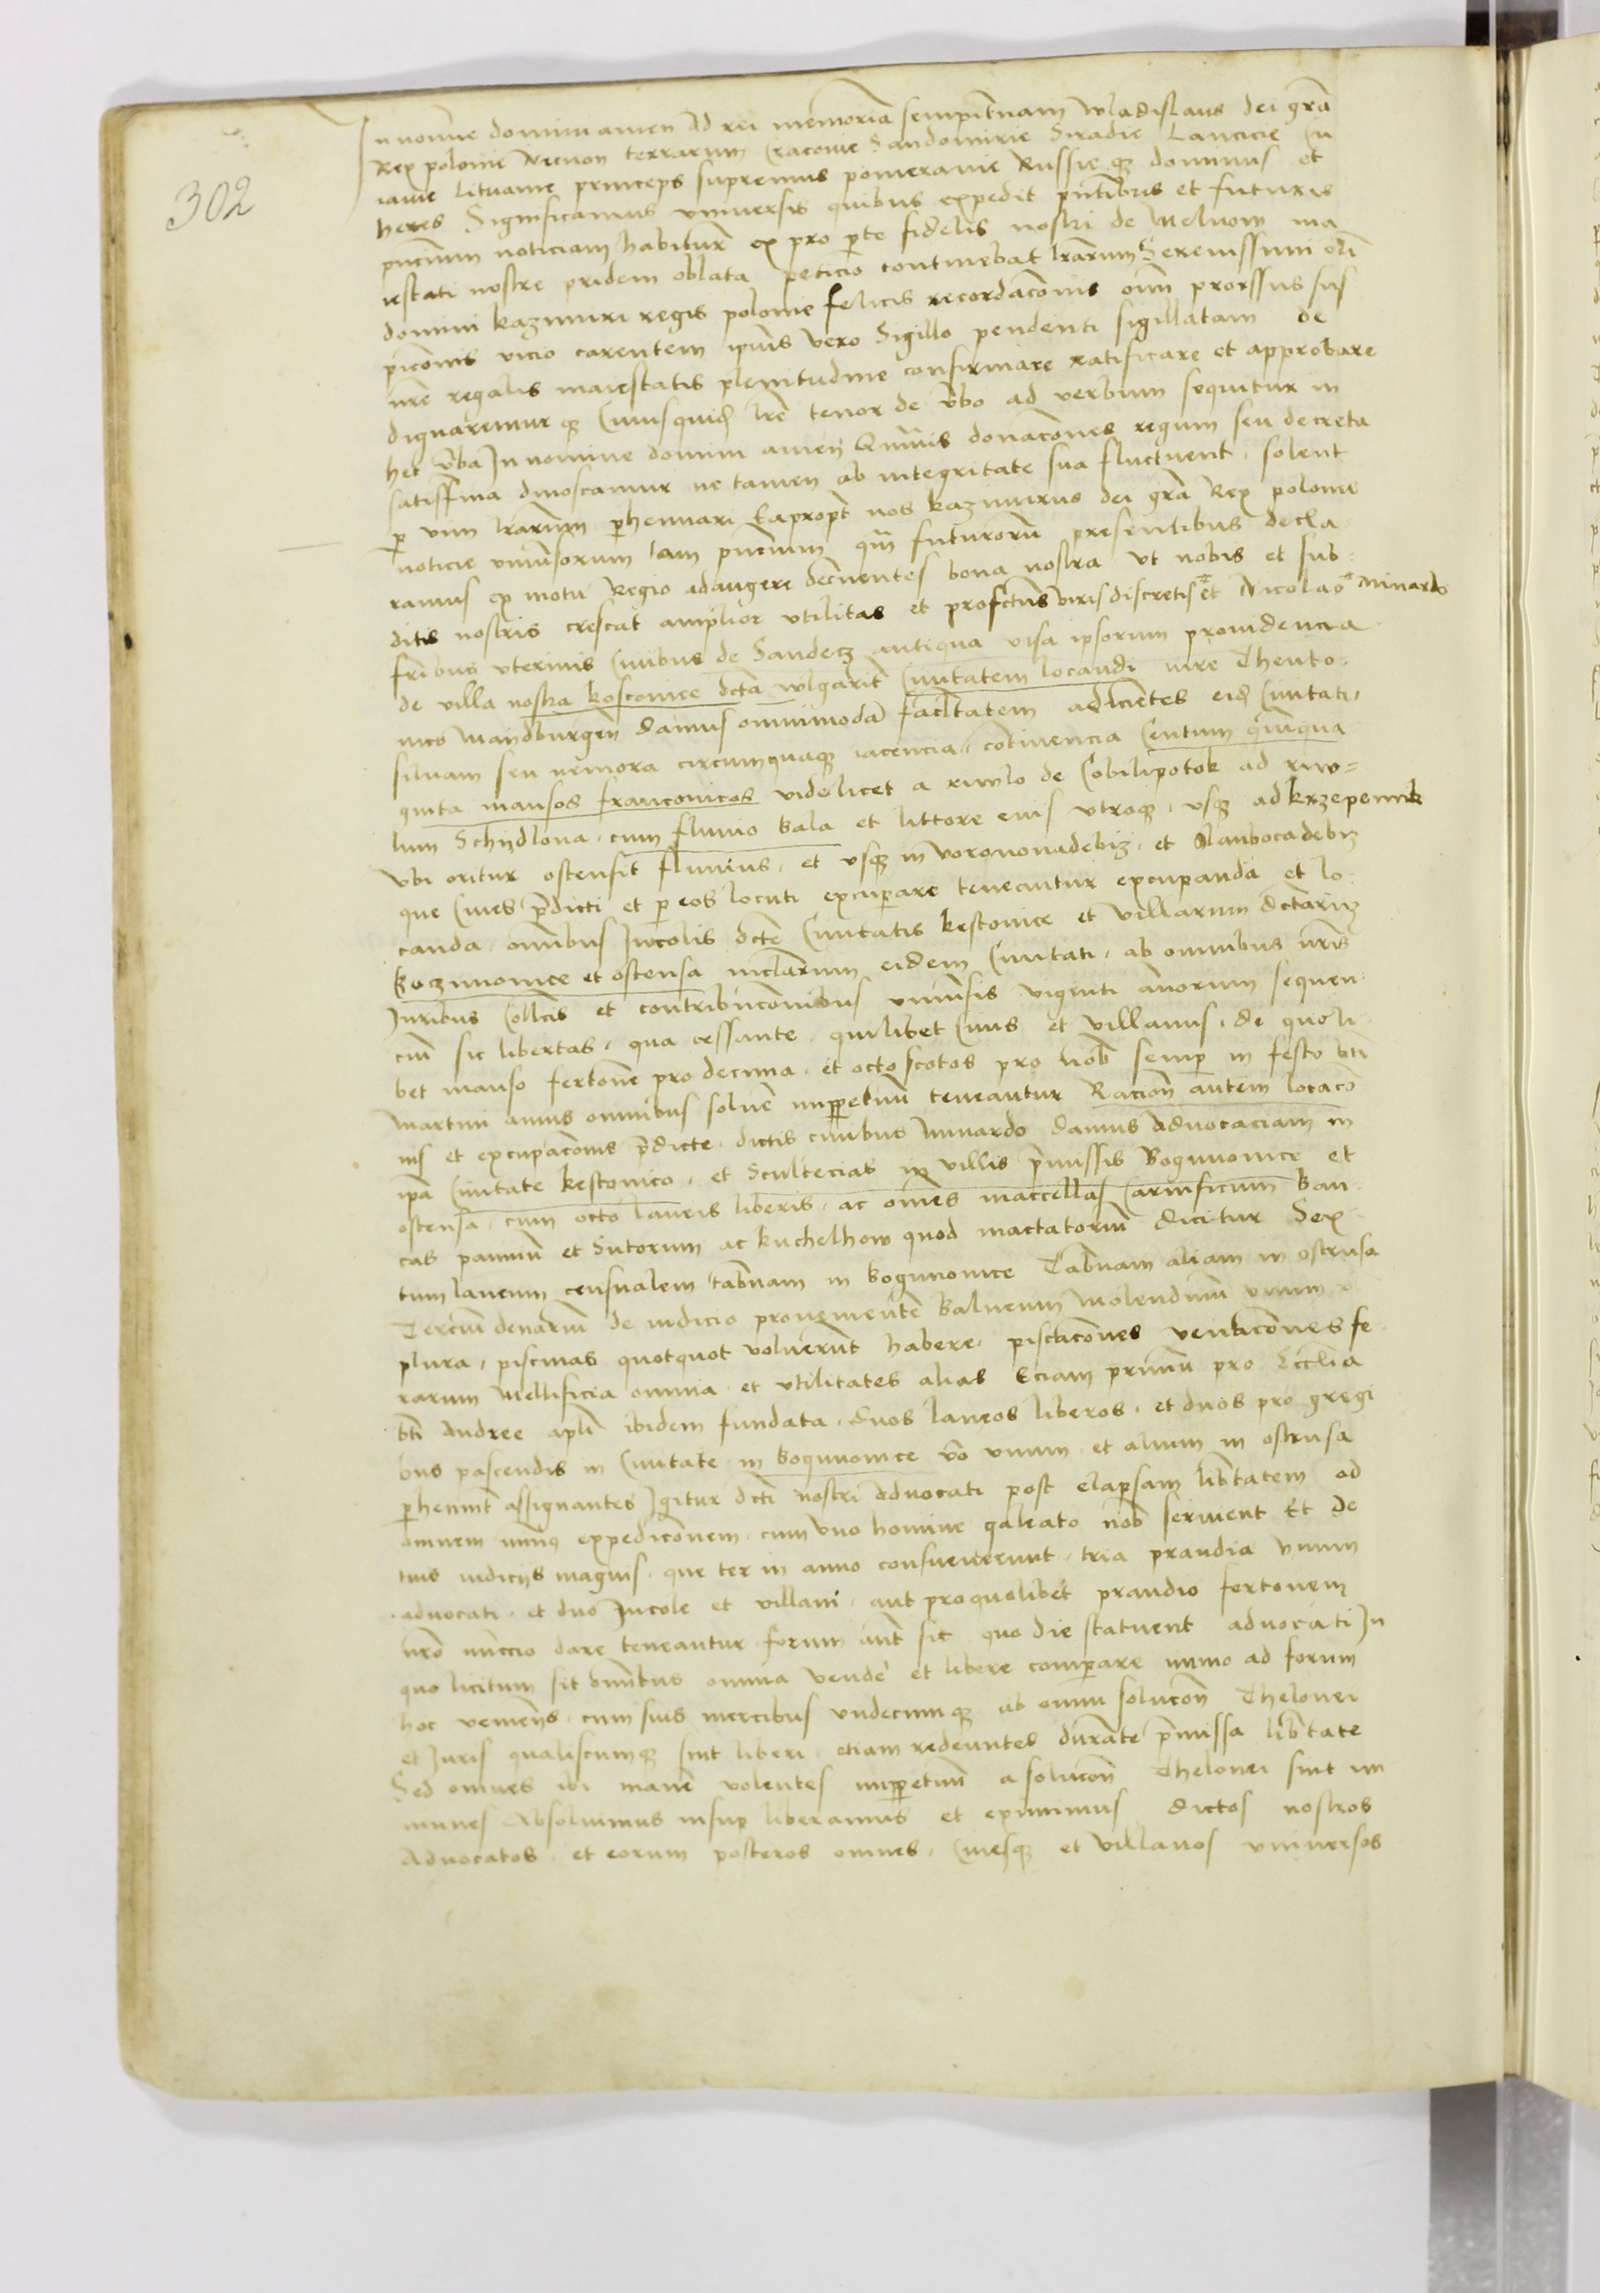 302
In nomine domini amen Ad rei memoriā sempitnam wladislaus dei grā
Rex polonie necnon terrarum Cracovie Sandomirie Siradie Lancicie Cu
iavie Lituanie princeps supremus pomeranie Russieqz dominus et
heres Significamus universis quibus expedit pntibus et futuris
pncium noticiam habiturē ex pro pte fidelis nostri de Melnom ma
iestati nostre pridem oblata peticio continebat lrārum Serenissimi oli
domini kazimiri regis polonie felicis recordacōnis oīm prorssus sus
picōnis vicio carentem ipius vero Sigillo pendenti sigillatam de
nrē regalis maiestatis plenitudine confirmare ratificare et approbare
dignaremur qz Cuiusquidē lrē tenor de v̄bo ad verbum sequitur in
hec v̄ba In nomine domini amen Quāuis donacōnes regum seu decreta
satis firma dinoscantur ne tamen ab integritate sua fluctuent, solent
p vim lrārum phennari Eapropt nos kazimirus dei grā Rex polonie
noticie uniūsorum tam pncium qm̄ futurorū presentibus decla
ramus ex motu Regio adaugere decnentes bona nostra ut nobis et sub
ditis nostris crescat amplior utilitas et profctus viris discretis et Nicolao Minardo
fribus uterinis Civibus de Sandecz antiqua visa ipsorum providencia
de villa nostra kosconice dctā wlgarit̄ Civitatem locandi iure Theuto
nico Maydburgen̄ damus omnimodā facltatem adicientes eid Civitati,
silvam seu nemora circumquaqz iacencia, cōtinencia Centum quīqua
ginta mansos franconicos videlicet a rivwlo de Cobilipotok ad riw=
lum Schydlova, cum fluvio bala et littore eius utroqz, usqz ad krzepennik
ubi oritur ostensit fluvius, et usqz in voronovadebiz, et Glambocadebiz
que Cives p̄dicti et p eos locati excupare teneantur excupanda et lo
canda, omībus Incolis dctē Civitatis kestonice et villarum dctarūz
Boguvonice et ostensa iuctarum eidem Civitati, ab omnibus nrīs
Iuribus Collctis et contribucōnibus univsis viginti annorum sequen
cium sic libertas, qua cessante, quilibet Civis et villanus, de quoli
bet manso fertonē pro decima, et octo scotos pro nob semp in festo bti
Martini annis omnibus solvē imppetuū teneantur Raciōn autem locacō
nis et excupacōnis p̄dicte, dictis civibus Minardo damus Advocaciam in
ipā Civitate kestonico, et Scultecias in villis p̄missis Boguvonice et
ostensa, cum octo laneis liberis, ac omēs maccellas Carnificum Ban
cas pannū et Sutorum ac kuchelhow quod mactatoriū dicitur Sex
tum laneum censualem tabnam in boguvonice Tabnam aliam in ostrusa
Terciū denariū de iudicio provenientē Balneum Molendinū unum v
plura, piscinas quotquot voluerint habere, piscacōnes venacōnes fe
rarum Mellificia omnia et utilitates alias Eciam primū pro Ecclia
bti Andree apli ibidem fundata, duos laneos liberos, et duos pro gregi
bus pascendis in Civitate in boguvonice v̄o unum et alium in ostrusa
phennit assignantes Igitur dcti nostri advocati post elapsam libtatem ad
omnem nrām expedicōnem cum uno homine galeato nob servient Et de
tius iudiciis magnis, que ter in anno consueverunt, tria prandia unum
advocati, et duo Incole et villani, aut pro quolibet prandio fertonem
nrō nunccio dare teneantur forum aut sic quo die statuent advocati In
quo licitum sit omībus omnia vende et libere comparare immo ad forum
hoc veniens, cum suis mercibus undecumqz ab omni solucōn Thelonei
et Iuris qualiscumqz sint liberi, etiam redeuntes durāte p̄missa libtate
Sed omnes ibi manē volentes imppetuū a solucōn Thelonei sint im
munes Absolvimus insup liberamus et eximimus dictos nostros
Advocatos, et eorum posteros omnes, Civesqz et villanos universos